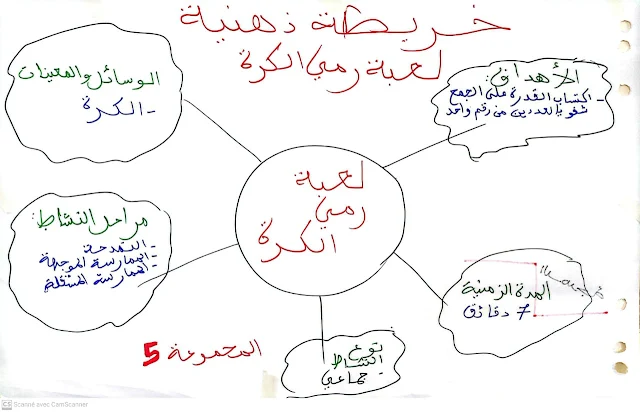 خريطة ذهنية
لعبة رمي الكرة
الأهداف:
- اكتساب القدرة على الجمع
شفويا لعددين من رقم واحد
الوسائل والمعينات
- الكرة
لعبة
رمي
الكرة
مراحل النشاط:
- النمذجة
- الممارسة الموجهة
- الممارسة المستقلة
المدة الزمنية
7 دقائق
نوع
النشاط
جماعي
المجموعة 5
CS Scanné avec CamScanner